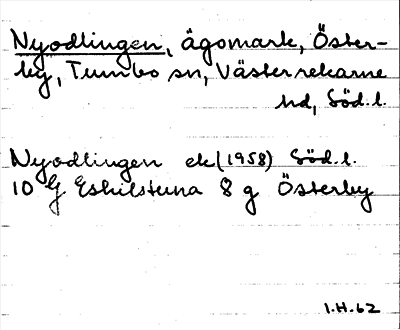 Nyodlingen, ägomark, Öster-
by, Tumbo sn, Västerrekarne
hd, Söd.l.
Nyodlingen ek (1958) Söd.l.
10 G Eskilstuna 8 g Österby
I.H.62